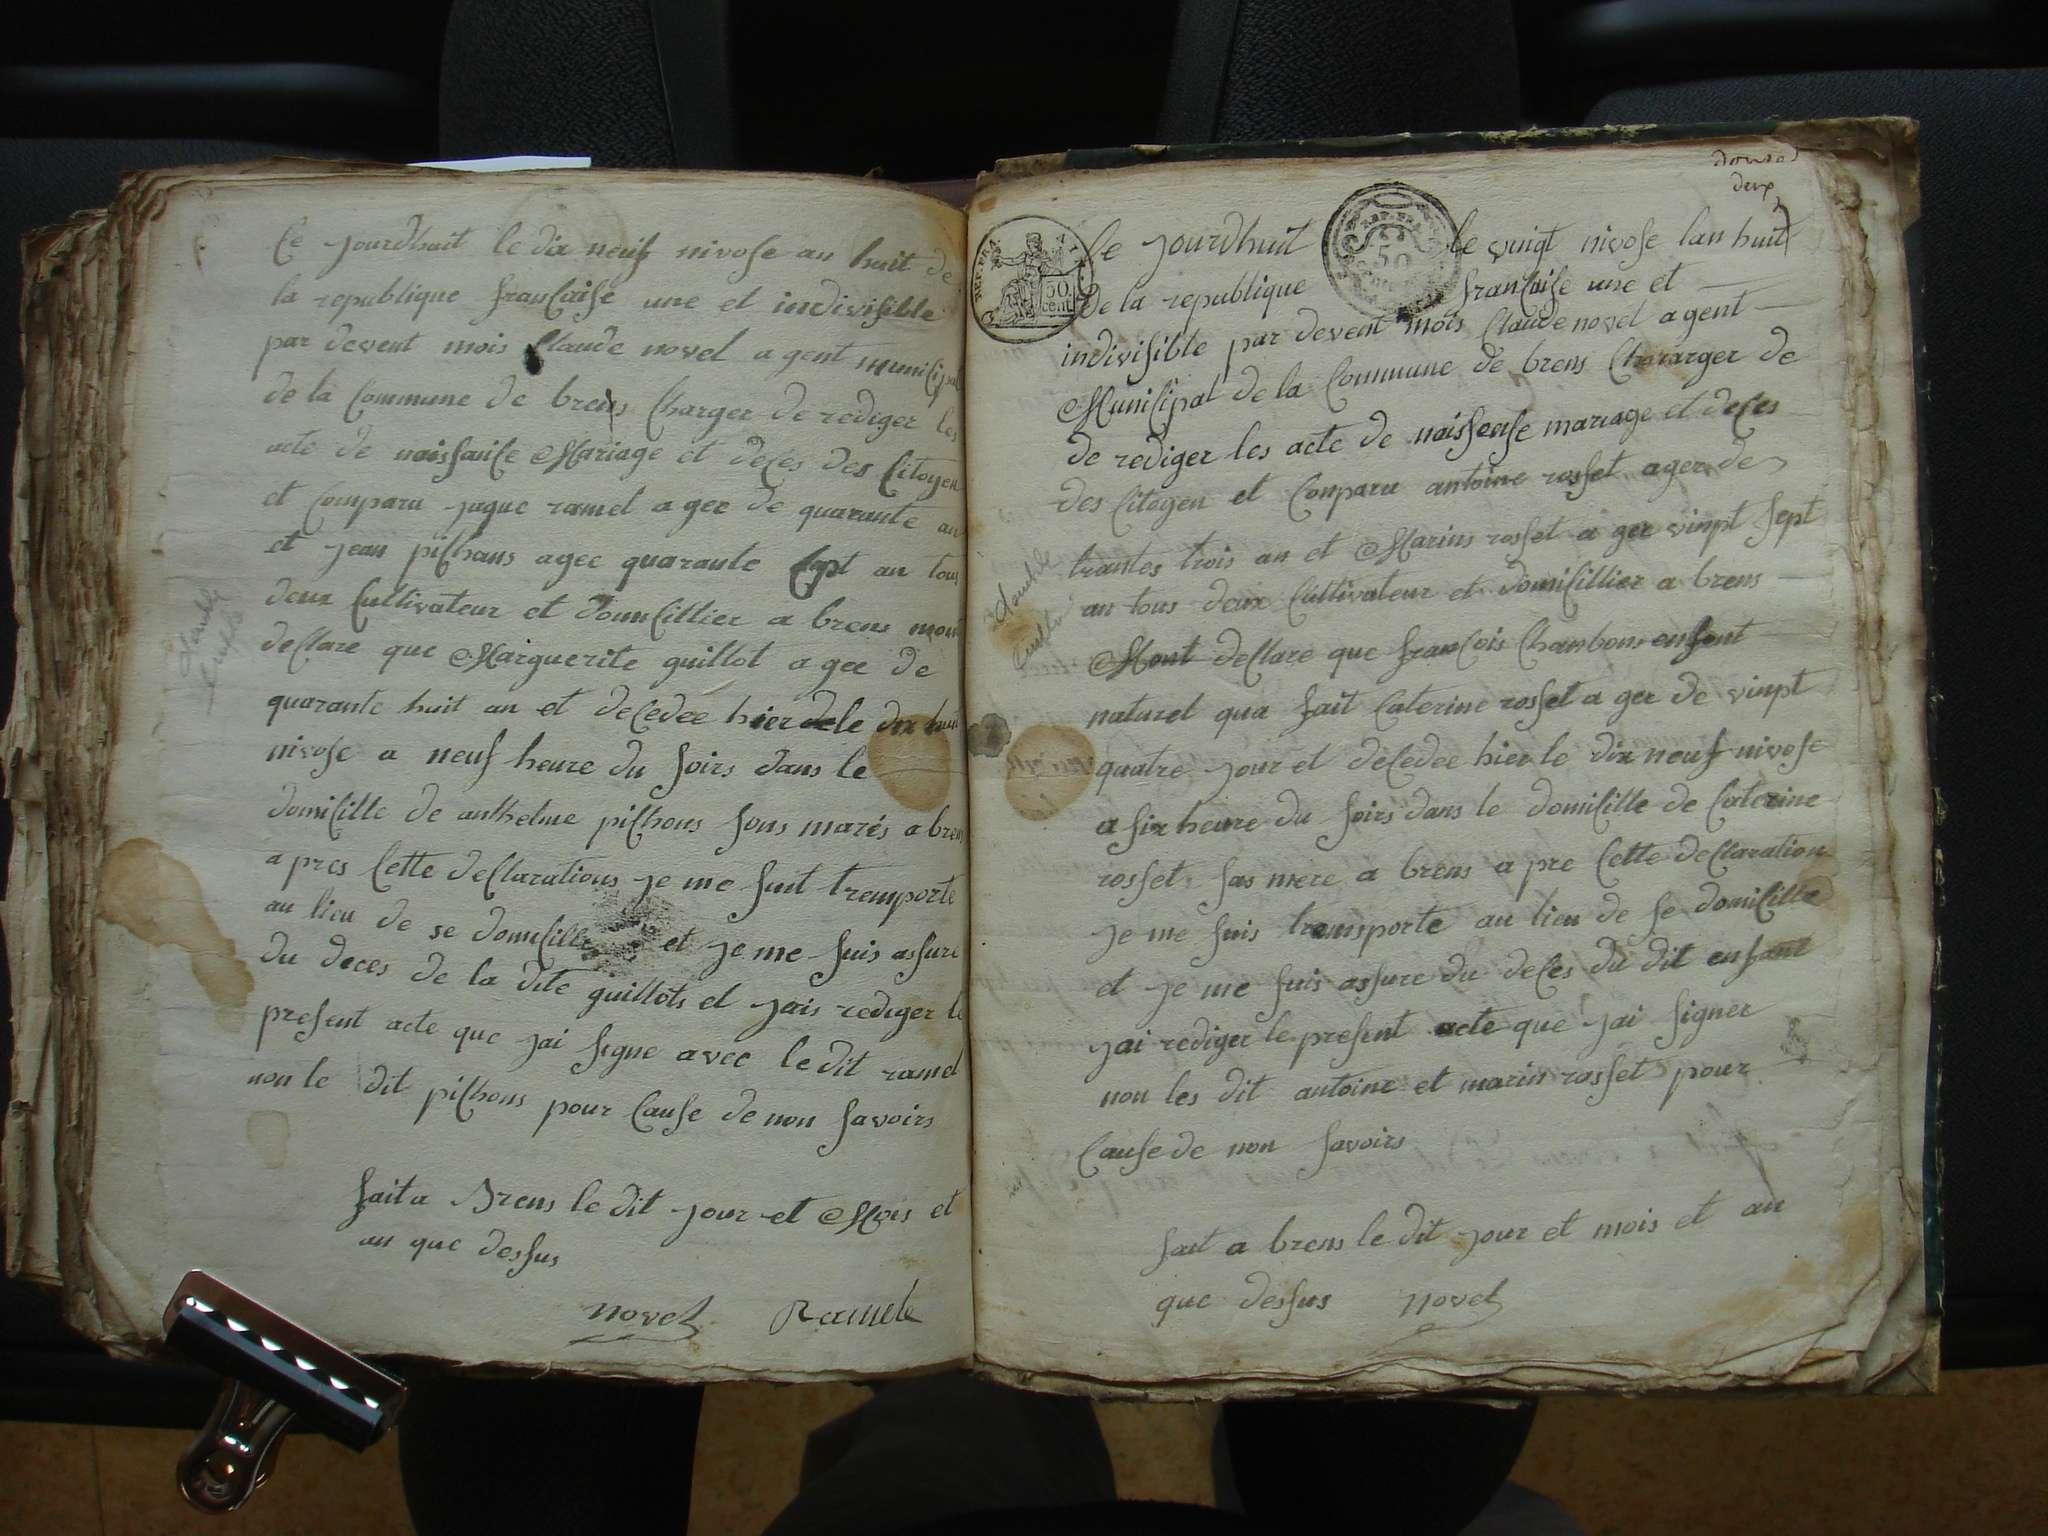 Ce jourdhuit le dix neuf nivose an huit de
la republique francaise une et indivisible
par devent mois Claude novel agent municipal
de la Commune de brens Charger de rediger les
acte de naissance Mariage et deces des Citoyen
et Comparu jaque ramel agee de quarante an
et jean pichons agee quarante sept an tous
deux Cultivateur et domicillier a brens mont
declare que Marguerite guillot agee de
quarante huit an et decedee hier le dix huit
nivose a neuf heure du soirs dans le
domicille de anthelme pichons sons maris a brens
apres Cette declarations je me suit tremporte
au lieu de se domicille et je me suis assure
du deces de la dite guillots et jais rediger le
present acte que jai signe avec le dit ramel
non le dit pichons pour Cause de non savoirs
fait a Brens le dit jour et Mois et
an que dessus
novel Ramel
double
deux
REP. FRA
50 cent
REP. FRA
50
Ce jourdhuit le vuigt nivose lan huit
de la republique francaise une et
indivisible par devent mois Claude novel agent
Municipal de la Commune de brens Chararger de
de rediger les acte de naissense mariage et deces
des Citoyen et Conparu antoine rosset ager de
trantes trois an et Marins rosset a gee vinpt sept
an tous deux Cultivateur et domicillier a brens
Mont declare que francois Chanbons enfent
naturel qua fait Caterine rosset a gee de vinpt
quatre jour et decedee hier le dix neuf nivose
a six heure du soirs dans le domicille de Caterine
rosset sas mere a brens a pre Cette declaration
je me suis transporte au lieu de se domicille
et je me suis assure du deces du dit enfant
jai rediger le present acte que jai signer
non les dit antoine et marin rosset pour
Cause de non savoirs
fait a brens le dit jour et mois et an
que dessus novel
double